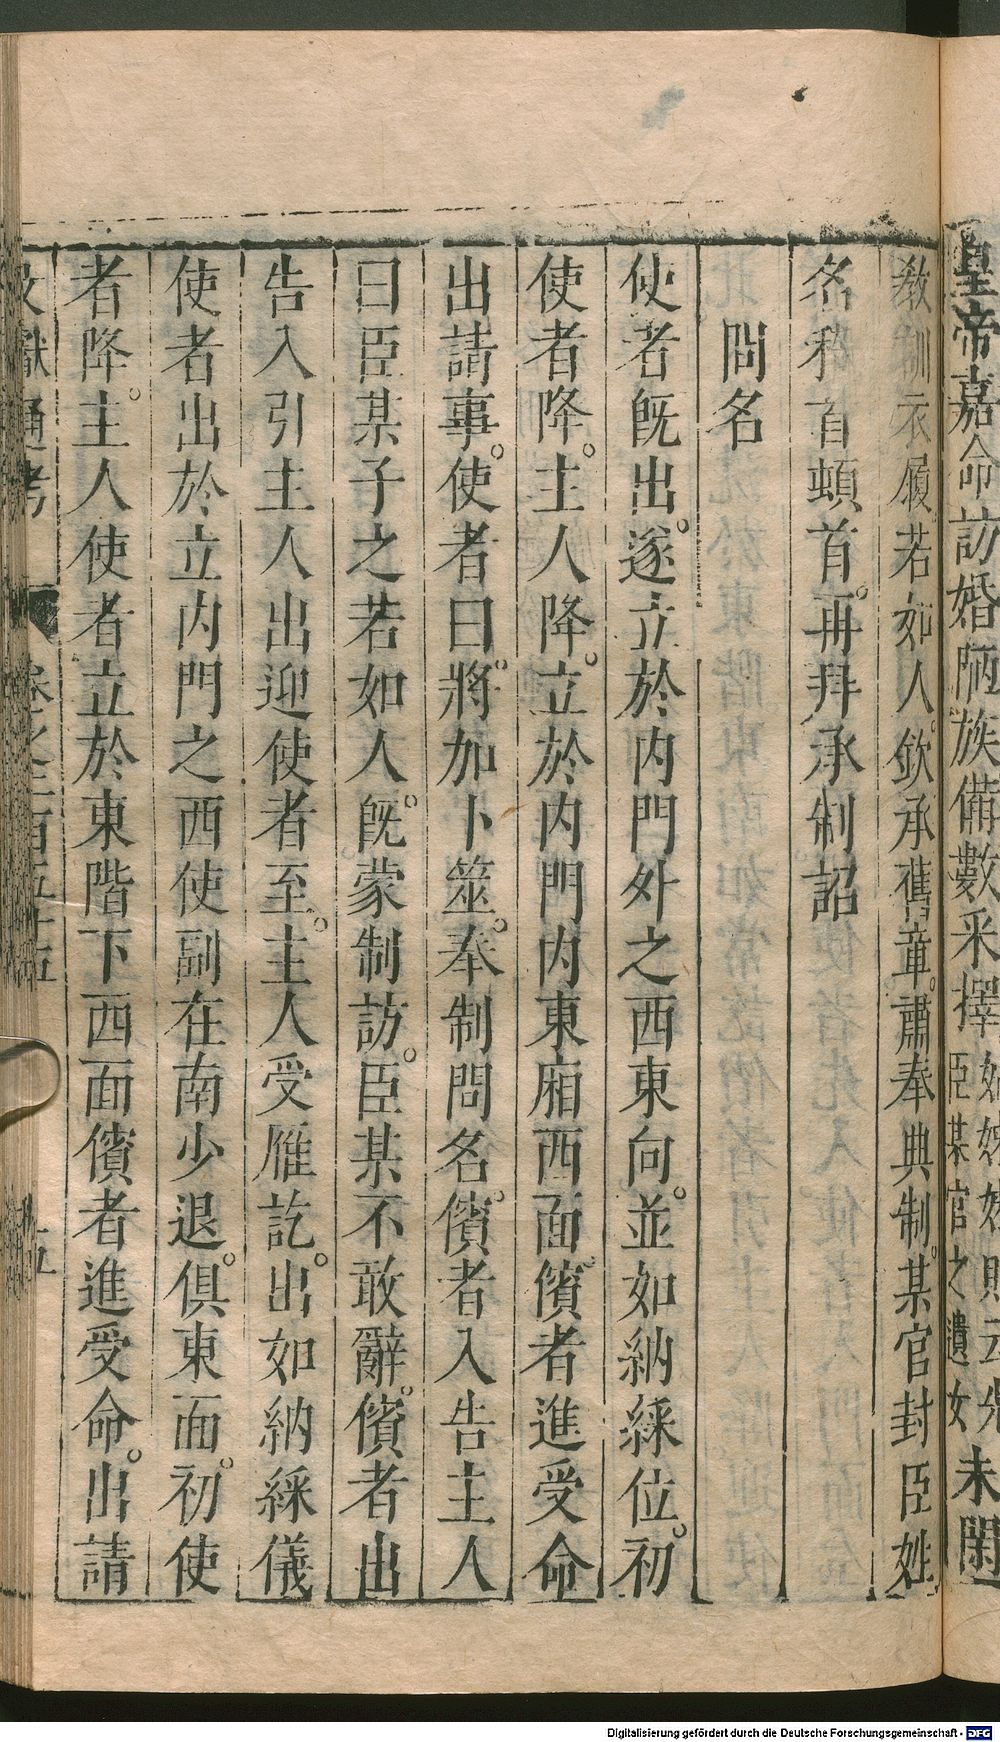 皇帝嘉命訪婚陋族備數采擇臣某官之遺女未閑
教訓衣履若如人欽承舊章肅奉典制某官封臣姓
名稽首頓首再拜承制詔
問名
使者既出遂立於内門外之西東向並如納綵位初
使者降主人降立於内門内東廂西面儐者進受命
出請事使者曰將加卜筮奉制問名儐者入告主人
曰臣某子之若如人既蒙制訪臣某不敢辭儐者出
告入引主人出迎使者至主人受雁訖出如納綵儀
使者出於立内門之西使副在南少退俱東面初使
者降主人使者立於東階下西面儐者進受命出請
文獻通考 卷之二百五十五 五
Digitalisierung gefördert durch die Deutsche Forschungsgemeinschaft - DFG